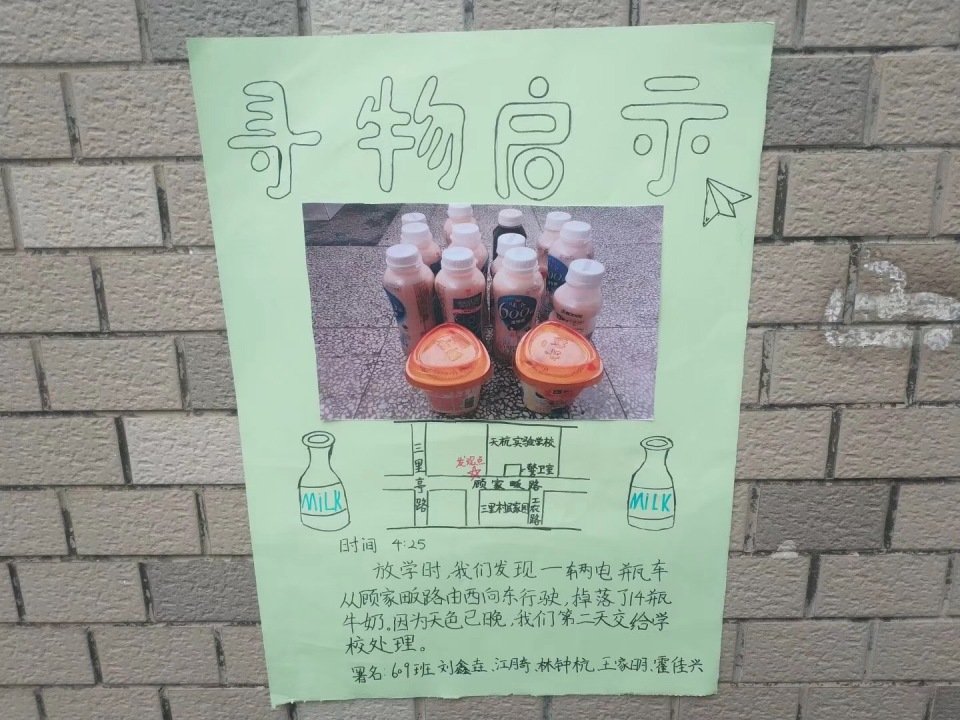 寻物启示
600
天杭实验学校
三里亭路
发现点
警卫室
顾家畈路
三里村城家园
工农路
MiLK
MiLK
时间 4:25
放学时,我们发现一辆电瓶车
从顾家畈路由西向东行驶,掉落了14瓶
牛奶。因为天色已晚,我们第二天交给学
校处理。
署名:609班 刘鑫垚、江月奇、林钟杭、王家明、霍佳兴